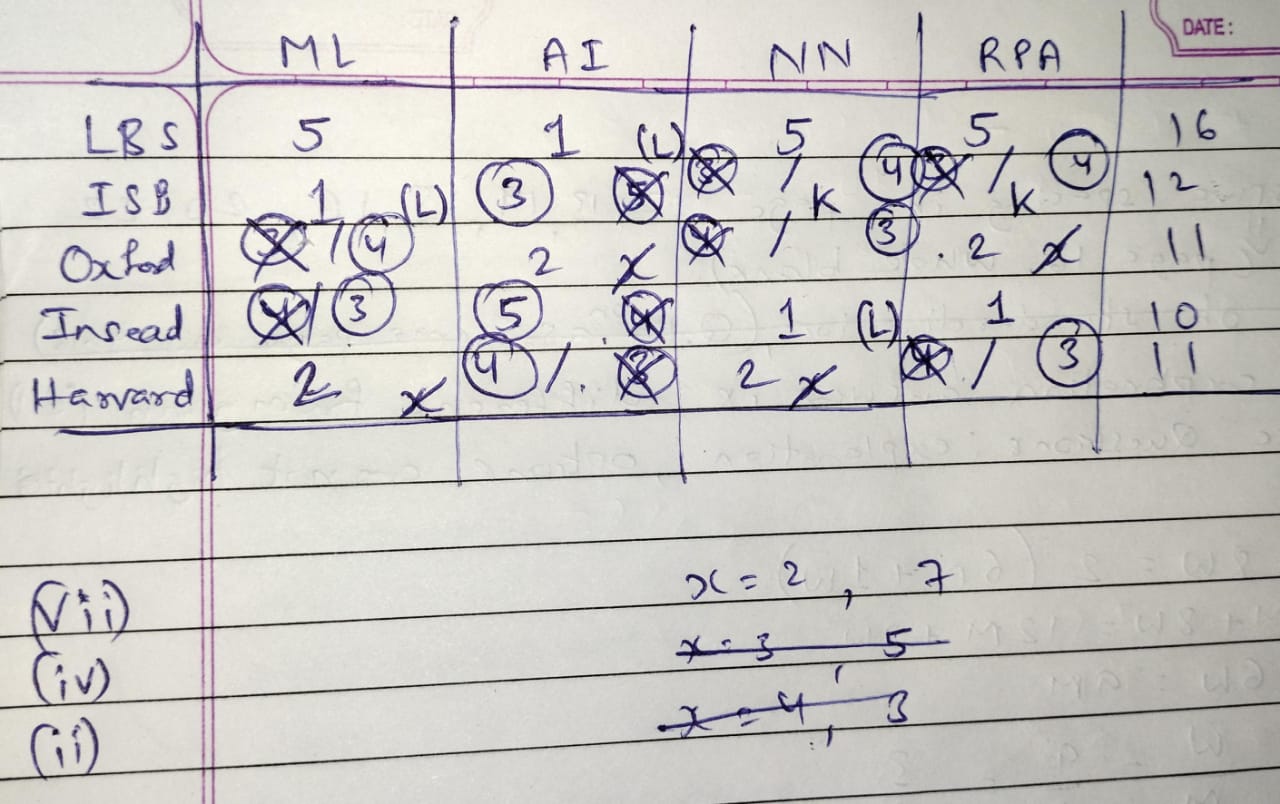 DATE:
ML AI NN RPA
LBS 5 1 (L) 5 5 16
ISB 1 (L) 3 3 3 / k 4 3 / k 4 12
Oxford 3 / 4 2 x 4 / 3 2 x 11
Insead 4 / 3 5 4 1 (L) 1 10
Harvard 2 x 4 / 3 2 x 4 / 3 11
(vii) x = 2 , 7
(iv) x = 3 , 5
(ii) x = 4 , 3